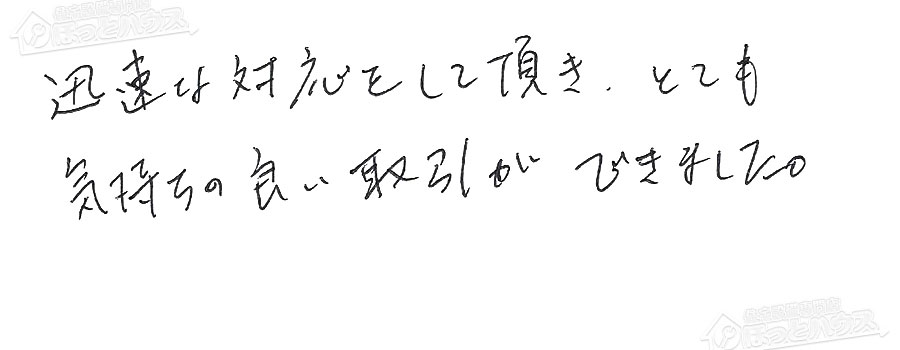 ほっとハウス
迅速な対応をして頂き、とても
気持ちの良い取引ができました。
ほっとハウス